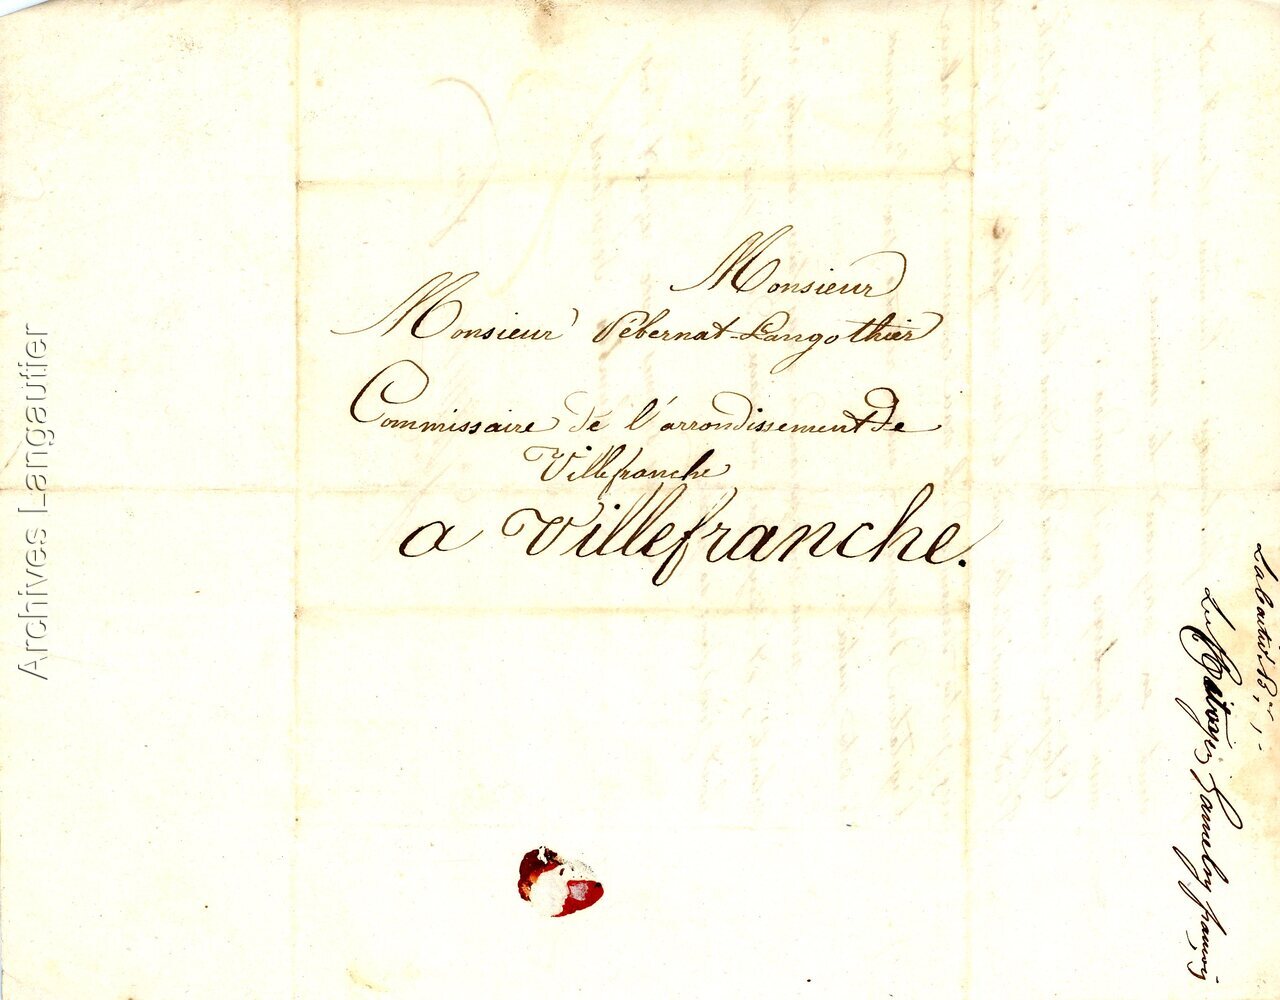 Monsieur
Monsieur Pébernat-Langothier
Commissaire de l'arrondissement de
Villefranche
a Villefranche.
Le Citoyen françois
Archives Langautier